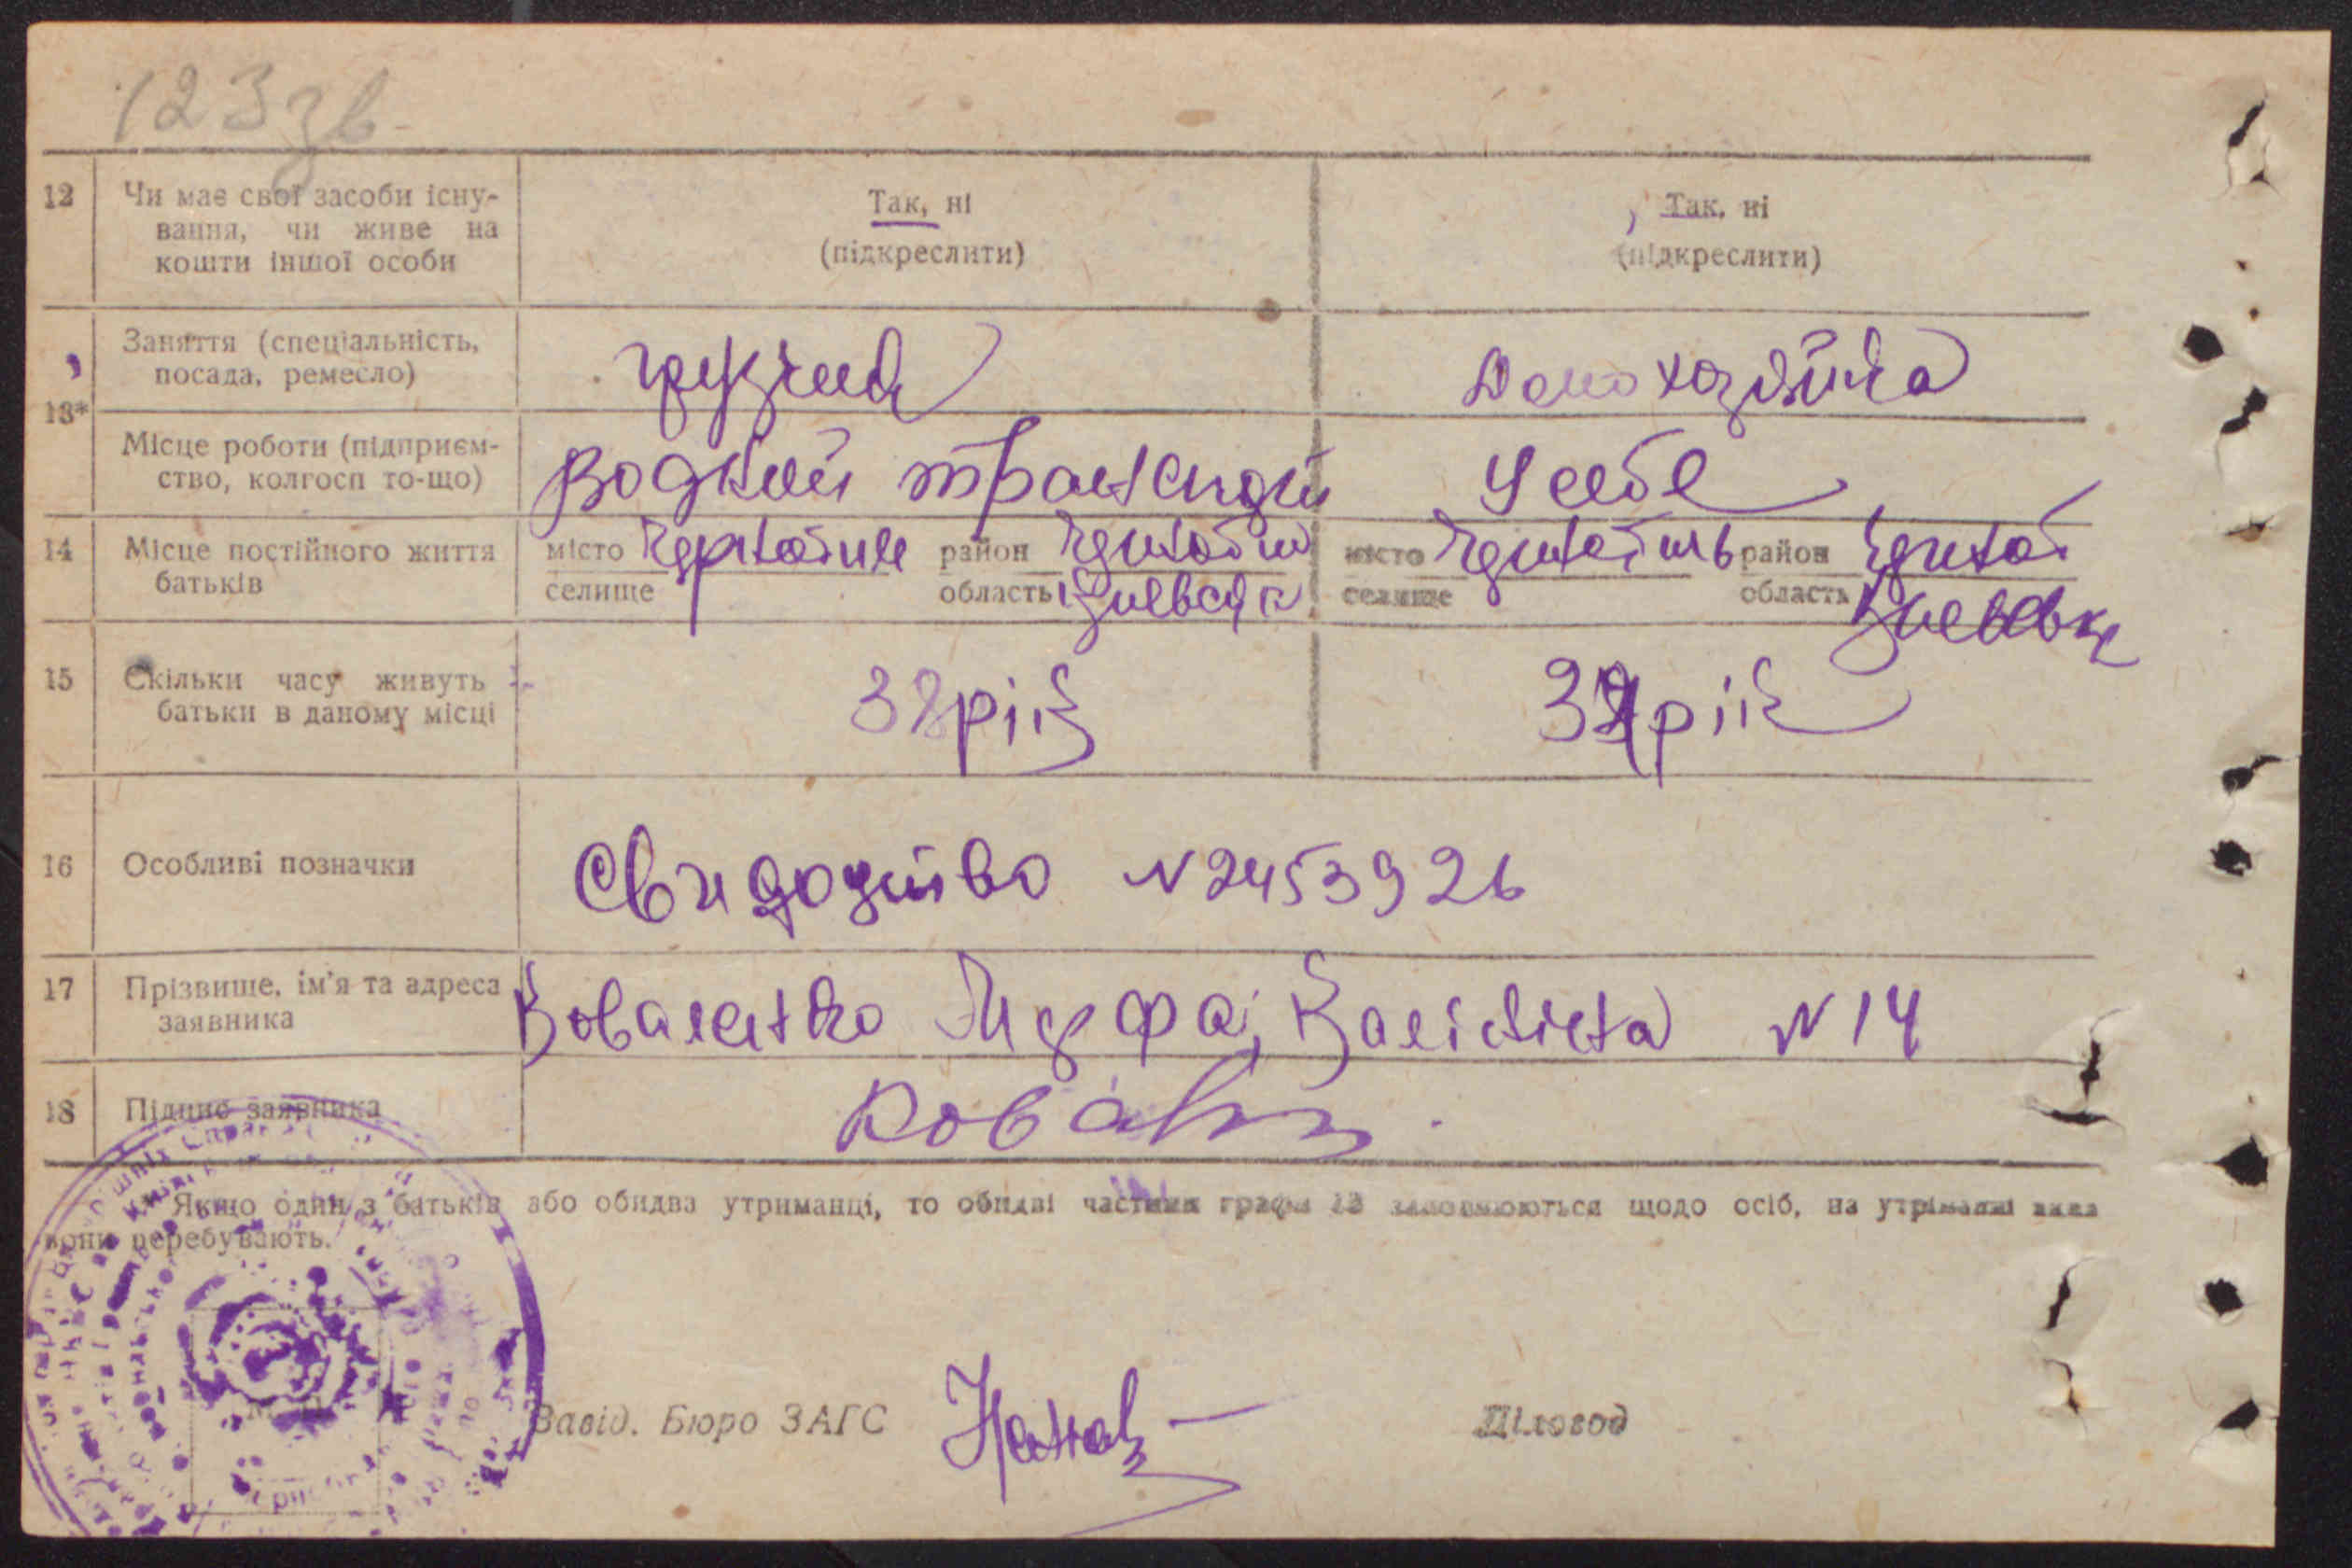 123зв.
12 Чи має свої засоби існу-
вання, чи живе на
кошти іншої особи
Так, ні
(підкреслити)
Так, ні
(підкреслити)
13*
Заняття (спеціальність,
посада, ремесло)
грузчик
Домохазяйка
Місце роботи (підприєм-
ство, колгосп то-що)
Водний транспорт
У себе
14 Місце постійного життя
батьків
місто Чорнобиль район Чорнобил
селище область Київська
місто Чорнобиль район Чорноб
селище область Київськ
15 Скільки часу живуть
батьки в даному місці
32 рік
рік
16 Особливі позначки
Свидоцтво N 2453926
17 Прізвище, ім'я та адреса
заявника
Коваленко Калініна N 14
18 Підпис заявника
* Якщо один з батьків або обидва утриманці, то обидві частини графи 13 заповнюються щодо осіб, на утриманні яких
вони перебувають.
Завід. Бюро ЗАГС
Діловод